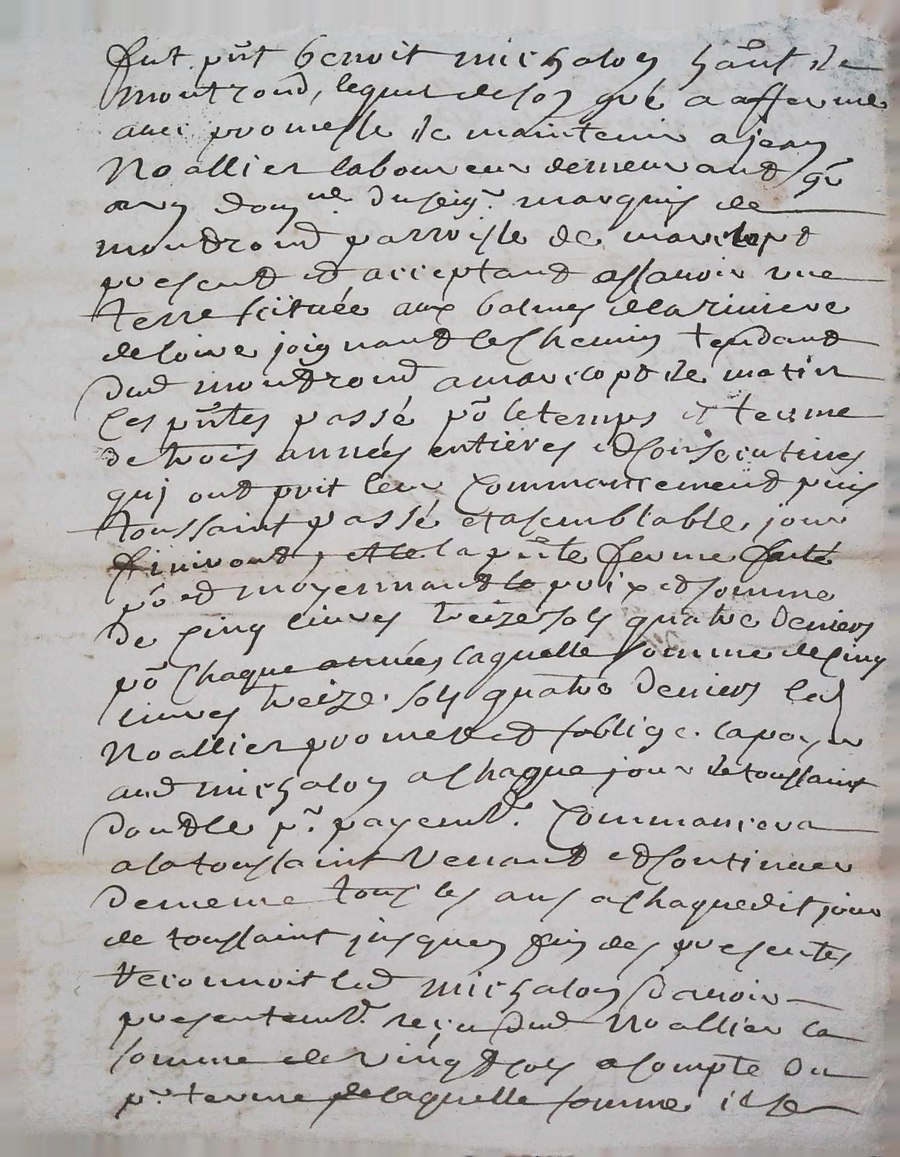 fut pnt benoit michalon hant de
montrond, lequel de son gré a affermé
avec promesse de maintenir a jean
Noallier laboureur demeurand
domne du seigr marquis de
mondrond parroisse de marclopt
present et acceptand assavoir une
terre scituée aux balmes de la riviere
de loire joignand les chemin tendand
dud mondrond a marclopt de matin
Ces pntes passé po le temps et terme
de trois années entieres et consecutives
qui ond prit leur Commancement puis
toussaint passé et a semblable jour
finirond, la pnte ferme faite
po et moyennand le prix et somme
de cinq livres treize sols quatre deniers
po Chaque années laquelle somme de cinq
livres treize sols quatre deniers led
Noallier promet et soblige la payer
aud michalon a Chaque jour de toussaint
dond le pr payemt Commancera
a la toussaint Venand et continuer
de meme tous les ans a chaque dit jour
de toussaint jusques fin des presentes
reconnoit led michalon davoir
presentemt reçu dud Noallier la
somme de vingt sols a compte du
pr terme de laquelle somme il se